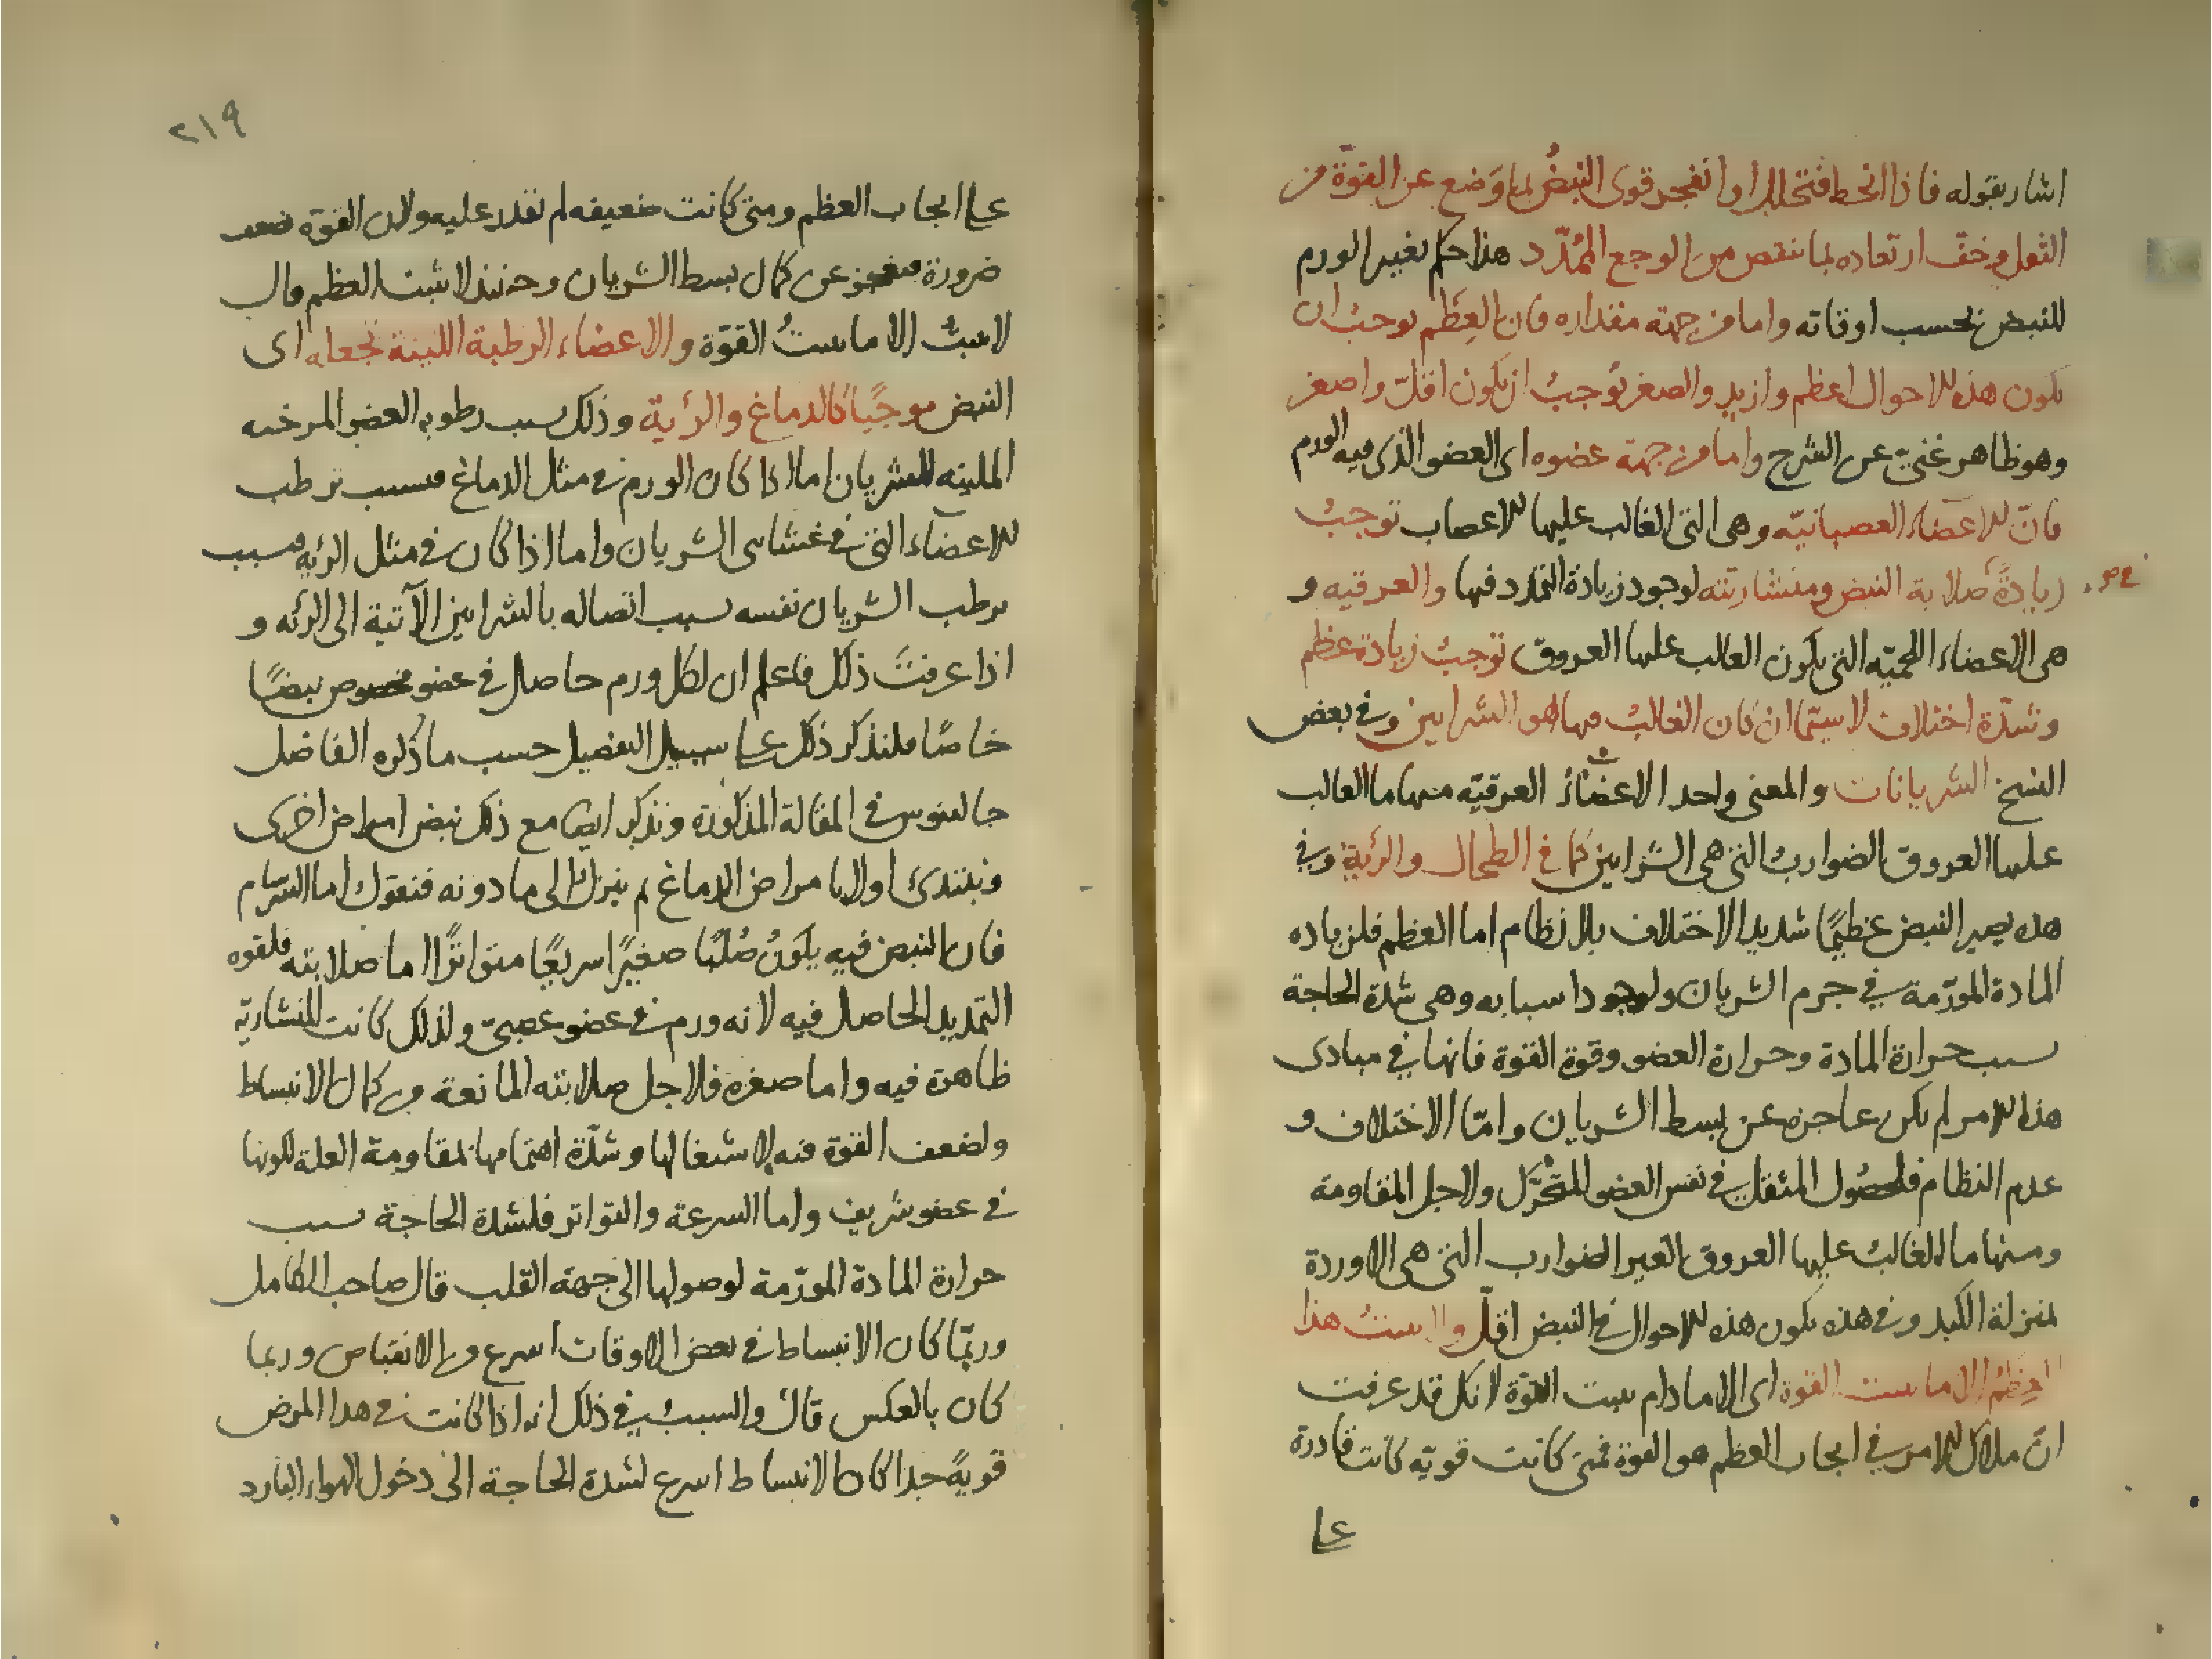 اشار بقوله فاذا انحط فتحلل او انفجر قوى النبض بما وضع عن القوة من
الثقل وخف ارتعاده بما ينقص من الوجع الممدد هذا حكم تغير الورم
للنبض بحسب اوقاته واما من جهة مقداره فان العظم يوجب ان
تكون هذه الاحوال اعظم وازيد والصغر يوجب ان يكون اقل واصغر
وهو ظاهر غني عن الشرح واما من جهة عضوه اى العضو الذى فيه الورم
فان الاعضاء العصبانية وهى التى الغالب عليها الاعصاب توجب
زيادة صلابة النبض ومنشاريته لوجود زيادة التمدد فيها والعرقيه و
هى الاعضاء اللحمية التى يكون الغالب عليها العروق توجب زيادة عظم
وشدة اختلاف لاسيما ان كان الغالب فيها هو الشرايين وفى بعض
النسخ الشريانات والمعنى واحد الاعضاء العرقيه منها ما الغالب
عليها العروق الضوارب التى هى الشرايين كما فى الطحال والرئية وفى
هذه يصير النبض عظيما شديد الاختلاف بلا نظام اما العظم فلزياده
المادة المورمة فى جرم الشريان ولوجود اسبابه وهى شدة الحاجة
بسبب حرارة المادة وحرارة العضو وقوة القوة فانها فى مبادى
هذا الامر لم يكن عاجزه عن بسط الشريان واما الاختلاف و
عدم النظام فلحصول المثقل فى نفس العضو المتحرك ولاجل المقاومة
ومنها ما الغالب عليها العروق الغير الضوارب التى هى الاوردة
بمنزلة الكبد وفى هذه يكون هذه الاحوال فى النبض اقل ولا يثبت هذا
العظم الا ما يثبت القوة اى الا ما دام يثبت القوة لانك قد عرفت
ان ملاك الامر فى ايجاب العظم هو القوة فمتى كانت قوية كانت قادرة
على
٢١٩
على ايجاب العظم ومتى كانت ضعيفه لم تقدر عليه ولان القوة تضعف
ضرورة فتعجز عن كمال بسط الشريان وحينئذ لا يثبت العظم قال
لا يثبت الا ما يثبت القوة والاعضاء الرطبة اللينة تجعله اى
النبض موجيا كالدماغ والرئية وذلك بسبب رطوبه العضو المرخيه
الملينه للشريان اما اذا كان الورم فى مثل الدماغ فبسبب ترطب
الاعضاء التى فى غشاى الشريان واما اذا كان فى مثل الرئيه فبسبب
ترطب الشريان نفسه بسبب اتصاله بالشرايين الآتية الى الرئه و
اذا عرفت ذلك فاعلم ان لكل ورم حاصل فى عضو مخصوص نبضا
خاصا فلنذكر ذلك على سبيل التفصيل حسب ما ذكره الفاضل
جالينوس فى المقالة المذكورة ونذكر ايضا مع ذلك نبض امراض اخرى
ونبتدئ اولا بامراض الدماغ ثم ننزل الى ما دونه فنقول اما السرسام
فان النبض فيه يكون صلبا صغيرا سريعا متواترا اما صلابته فلقوه
التمديد الحاصل فيه لانه ورم فى عضو عصبى ولذلك كانت المنشارية
ظاهرة فيه واما صغره فلاجل صلابته المانعة من كمال الانبساط
ولضعف القوة فيه لاشتغالها وشدة اهتمامها بمقاومة العلة لكونها
فى عضو شريف واما السرعة والتواتر فلشدة الحاجة بسبب
حرارة المادة المورمة لوصولها الى جهة القلب قال صاحب الكامل
وربما كان الانبساط فى بعض الاوقات اسرع من الانقباض وربما
كان بالعكس قال والسبب فى ذلك انه اذا كانت فى هذا المرض
قوية جدا كان الانبساط اسرع لشدة الحاجة الى دخول الهواء البارد